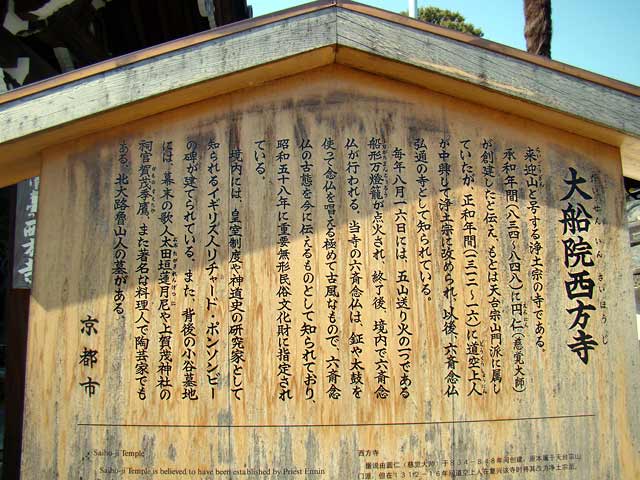 大船院西方寺
だいせんいんさいほうじ
来迎山と号する浄土宗の寺である。
承和年間（八三四〜八四八）に円仁（慈覚大師）
が創建したと伝え、もとは天台宗山門派に属し
ていたが、正和年間（一三一二〜一六）に道空上人
が中興して浄土宗に改められ、以後、六斎念仏
弘通の寺として知られている。
毎年八月一六日には、五山送り火の一つである
船形万燈籠が点火され、終了後、境内で六斎念
仏が行われる。当寺の六斎念仏は、鉦や太鼓を
使って念仏を唱える極めて古風なもので、六斎念
仏の古態を今に伝えるものとして知られており、
昭和五十八年に重要無形民俗文化財に指定され
ている。
境内には、皇室制度や神道史の研究家として
知られるイギリス人リチャード・ポンソンビー
の碑が建てられている。また、背後の小谷墓地
には、幕末の歌人太田垣蓮月尼や上賀茂神社の
祠官賀茂季鷹、また著名な料理人で陶芸家でも
ある、北大路魯山人の墓がある。
京都市
Saiho-ji Temple
Saiho-ji Temple is believed to have been established by Priest Ennin
西方寺
据说由圆仁（慈觉大师）于834-848年间创建。原本属于天台宗山
门派，但在131